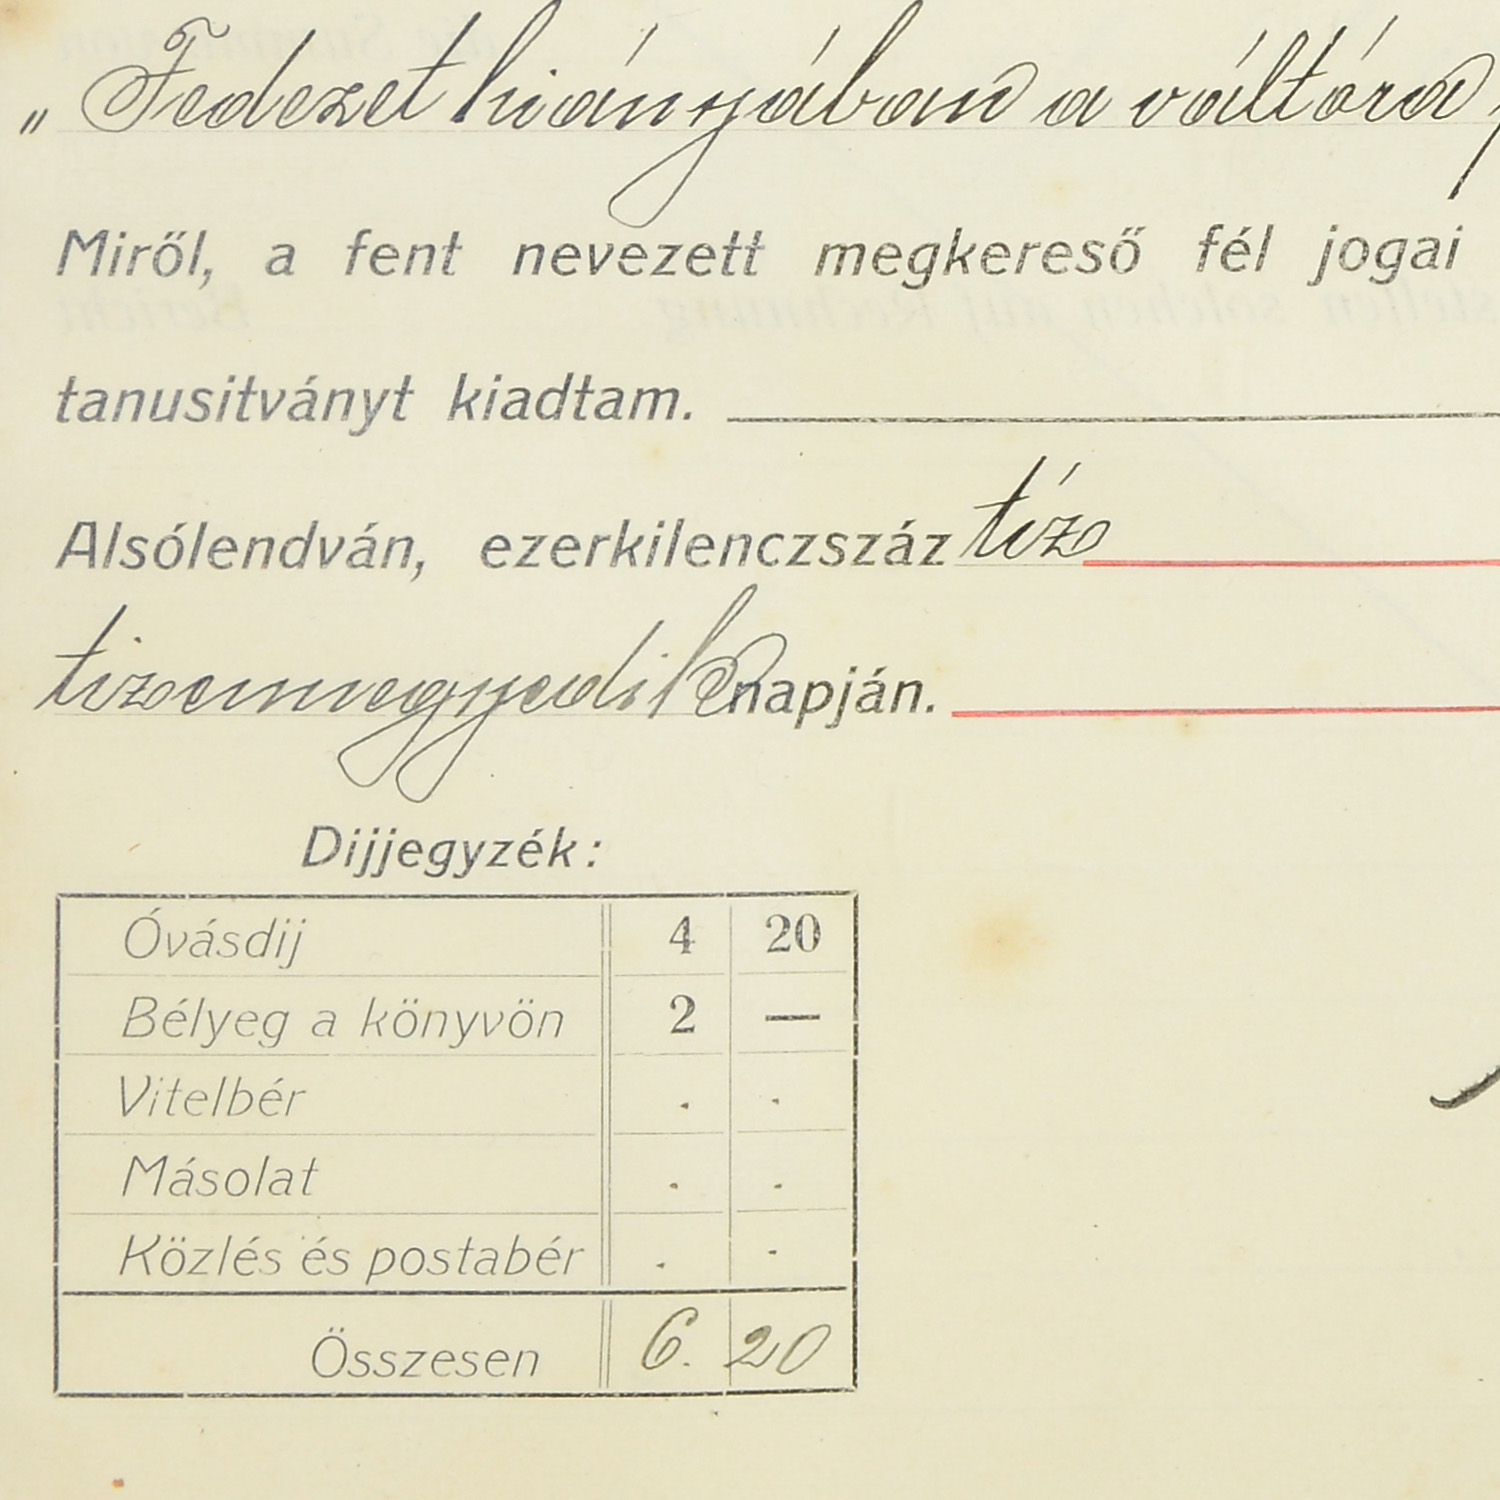 „Fedezet hiányjában a váltóra
Miről, a fent nevezett megkereső fél jogai
tanusitványt kiadtam.
Alsólendván, ezerkilenczszáz tíz
tizennegyedik napján.
Dijjegyzék:
Óvásdij 4 20
Bélyeg a könyvön 2 —
Vitelbér . .
Másolat . .
Közlés és postabér . .
Összesen 6. 20